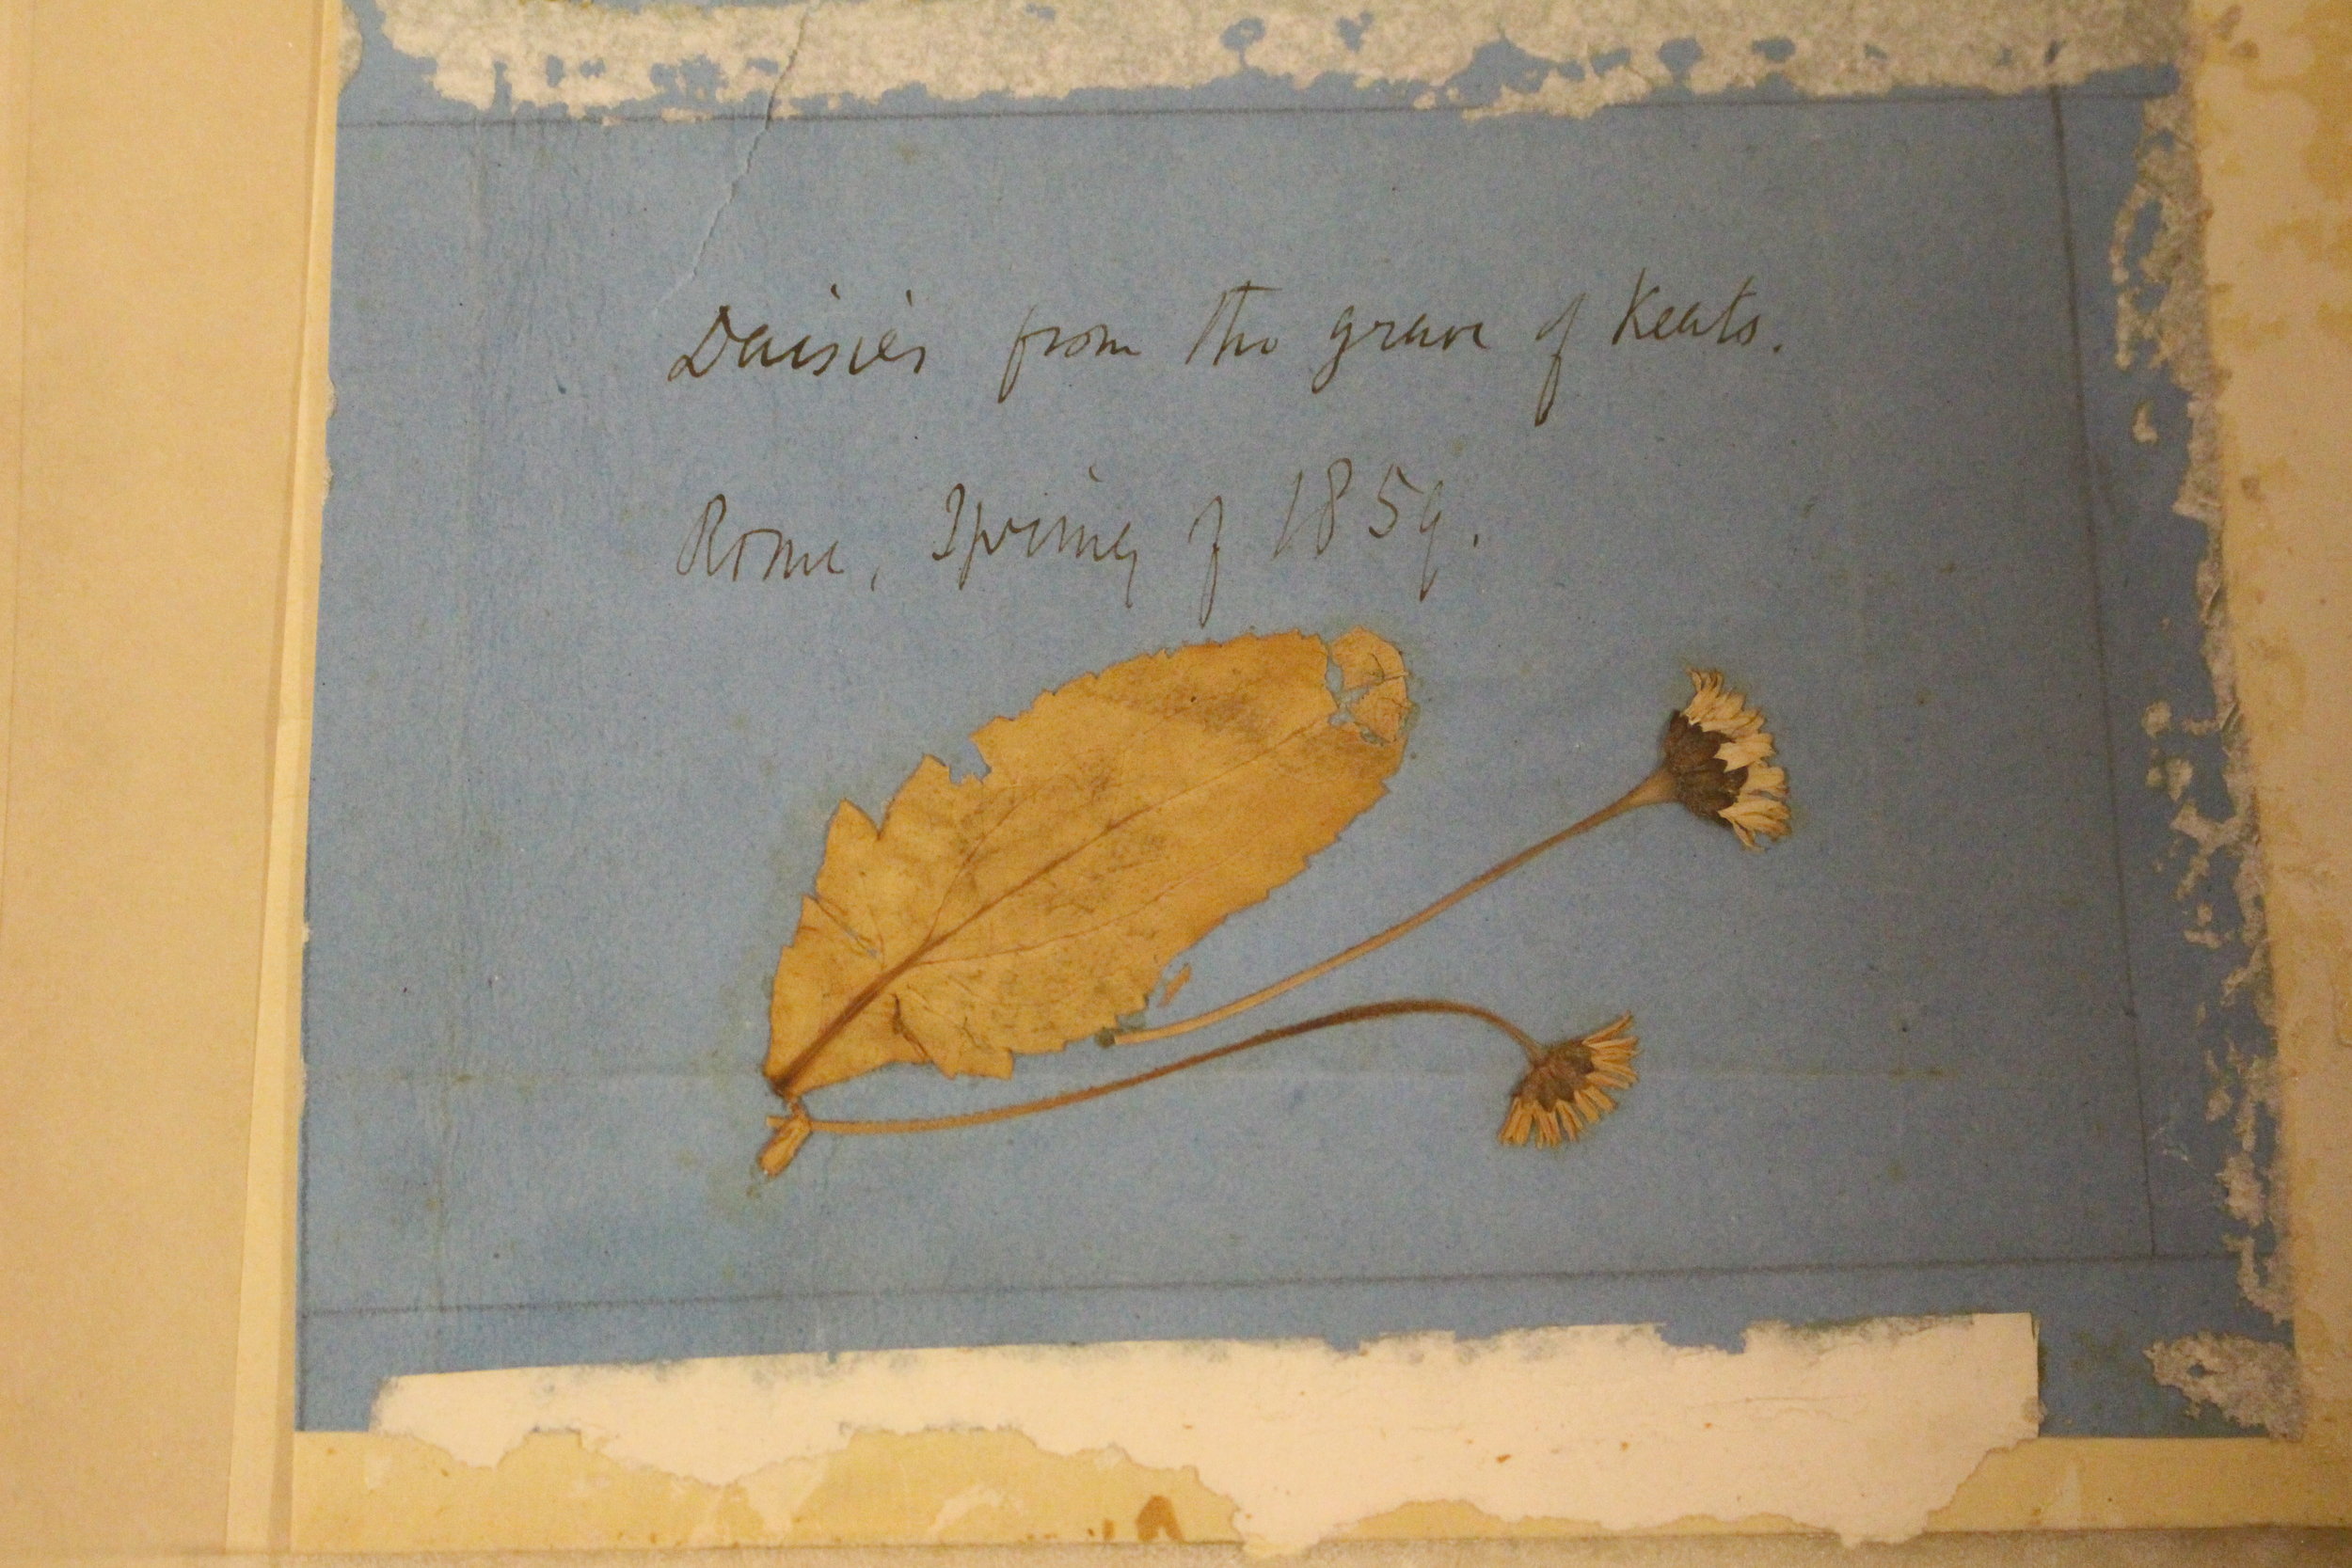 Daisies from the grave of Keats.
Rome, Spring of 1859.